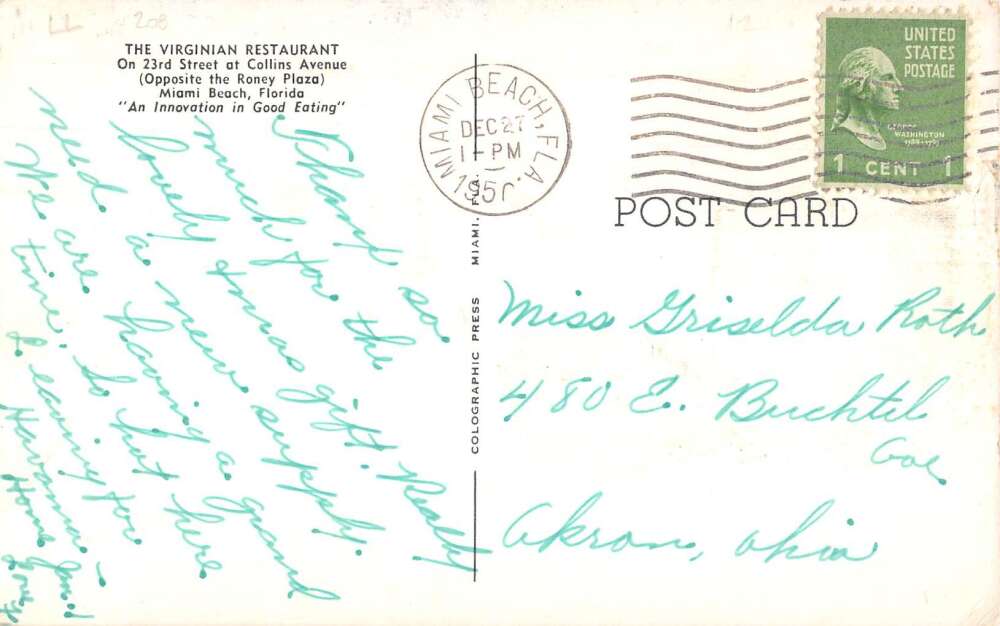 LL
208
THE VIRGINIAN RESTAURANT
On 23rd Street at Collins Avenue
(Opposite the Roney Plaza)
Miami Beach, Florida
"An Innovation in Good Eating"
Thanks so
much for the
lovely Xmas gift. Really
need a new supply.
We are having a grand
time. So hot here
Leaving for
Havana -
Home Jan.
Love
COLOGRAPHIC PRESS MIAMI, FLA.
MIAMI BEACH, FLA.
DEC 27
1 - PM
1950
UNITED
STATES
POSTAGE
GEORGE
WASHINGTON
1789-1797
1 CENT 1
POST CARD
Miss Griselda Roth
480 E. Buchtel
Ave.
Akron, Ohio